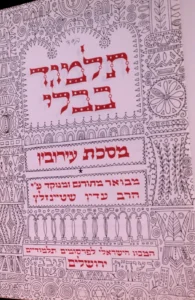 תלמוד
בבלי
מסכת עירובין
מבואר מתורגם ומנוקד ע״י
הרב עדין שטיינזלץ
המכון הישראלי לפרסומים תלמודיים
ירושלים